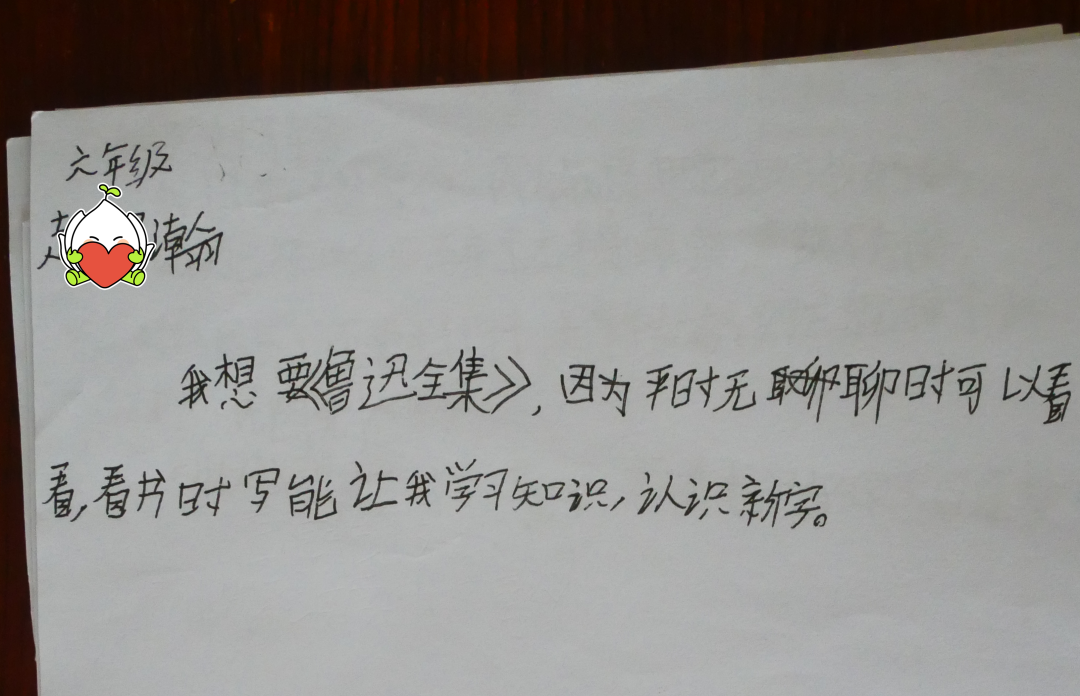 六年级
瀚
我想要《鲁迅全集》,因为平时无聊聊时可以看
看,看书时写能让我学习知识,认识新字。